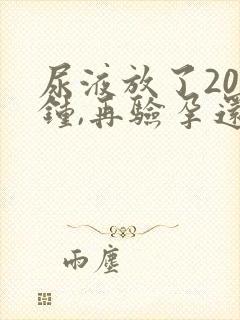 尿液放了20
鍾,再驗孕還
雨塵